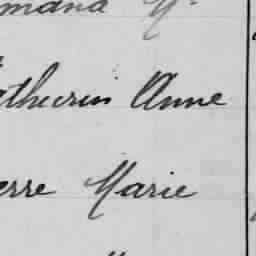 mand M
atherin Anne
erre Marie